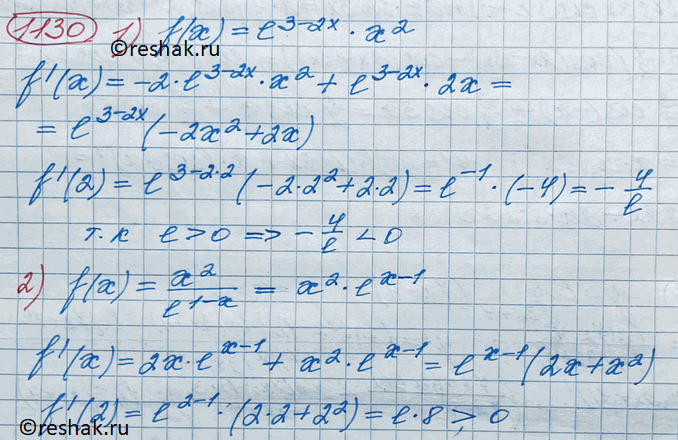 1130 1) f(x) = e^{3-2x} · x²
©reshak.ru
f'(x) = -2 · e^{3-2x} · x² + e^{3-2x} · 2x =
= e^{3-2x} (-2x² + 2x)
f'(2) = e^{3-2·2} (-2·2² + 2·2) = e^{-1} · (-4) = - 4/e
т.к e > 0 => - 4/e < 0
2) f(x) = x²/e^{1-x} = x² · e^{x-1}
f'(x) = 2x · e^{x-1} + x² · e^{x-1} = e^{x-1} (2x + x²)
f'(2) = e^{2-1} · (2·2 + 2²) = e · 8 > 0
©reshak.ru